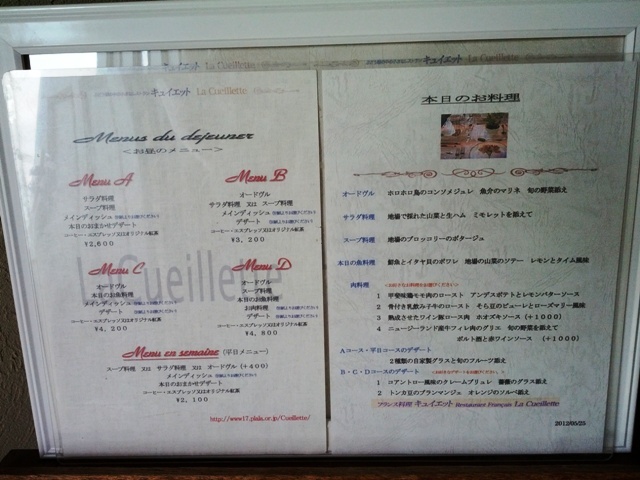 キュイエット La Cueillette
Menus du dejeuner
<お昼のメニュー>
Menu A
サラダ料理
スープ料理
メインディッシュ
本日のおまかせデザート
コーヒー・エスプレッソ又はオリジナル紅茶
¥2,600
Menu B
オードヴル
サラダ料理 又は スープ料理
メインディッシュ
デザート
コーヒー・エスプレッソ又はオリジナル紅茶
¥3,200
Menu C
オードヴル
本日のお魚料理
メインディッシュ
デザート
コーヒー・エスプレッソ又はオリジナル紅茶
¥4,200
Menu D
オードヴル
スープ料理
本日のお魚料理
お肉料理
デザート
コーヒー・エスプレッソ又はオリジナル紅茶
¥4,800
La Cueillette
Menu en semaine (平日メニュー)
スープ料理 又は サラダ料理 又は オードヴル (+400)
メインディッシュ
本日のおまかせデザート
コーヒー・エスプレッソ又はオリジナル紅茶
¥2,100
http://www17.plala.or.jp/Cueillette/
本日のお料理
オードヴル ホロホロ鳥のコンソメジュレ 魚介のマリネ 旬の野菜添え
サラダ料理 地場で採れた山菜と生ハム ミモレットを添えて
スープ料理 地場のブロッコリーのポタージュ
本日の魚料理 鮮魚とイタヤ貝のポワレ 地場の山菜のソテー レモンとタイム風味
肉料理
1 甲斐味鶏モモ肉のロースト アンデスポテトとレモンバターソース
2 骨付き乳飲み子牛のロースト そら豆のピューレとローズマリー風味
3 熟成させたワイン豚ロース肉 ホオズキソース (+1000)
4 ニュージーランド産牛フィレ肉のグリエ 旬の野菜を添えて
ポルト酒と赤ワインソース (+1000)
Aコース・平日コースのデザート
2種類の自家製グラスと旬のフルーツ添え
B・C・Dコースのデザート
1 コアントロー風味のクレームブリュレ 薔薇のグラス添え
2 トンカ豆のブランマンジェ オレンジのソルベ添え
フランス料理 キュイエット Restaurant Français La Cueillette
2012/05/25